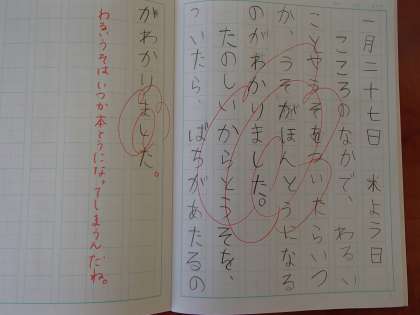 一月二十七日　木よう日
こころのなかで、わるい
ことやうそをついたらいつ
か、うそがほんとうになる
のがわかりました。
たのしいからとうそを、
ついたら、ばちがあたるの
がわかりました。
わるいうそはいつか本とうになってしまうんだね。